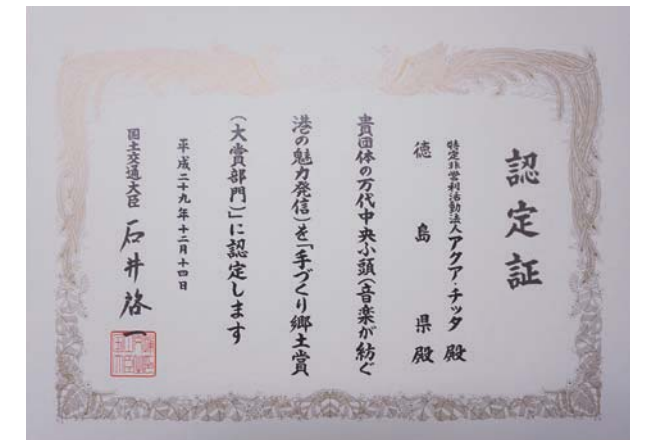 認定証
特定非営利活動法人アクア・チッタ 殿
徳島県 殿
貴団体の万代中央ふ頭(音楽が紡ぐ
港の魅力発信)を「手づくり郷土賞
(大賞部門)」に認定します
平成二十九年十二月十四日
国土交通大臣 石井啓一